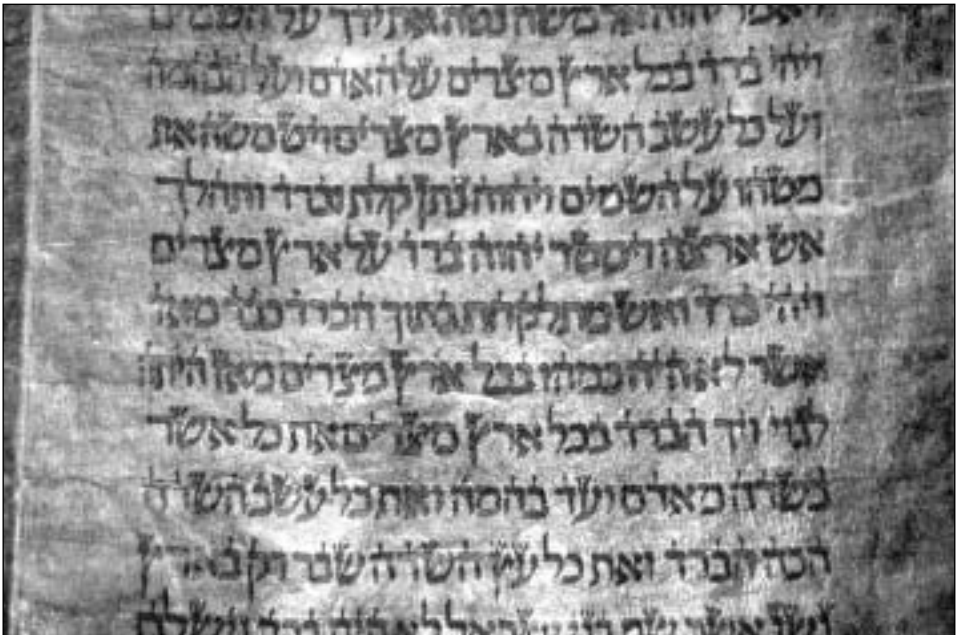 ויאמר יהוה אל משה נטה את ידך על השמים
ויהי ברד בכל ארץ מצרים על האדם ועל הבהמה
ועל כל עשב השדה בארץ מצרים ויט משה את
מטהו על השמים ויהוה נתן קלת וברד ותהלך
אש ארצה וימטר יהוה ברד על ארץ מצרים
ויהי ברד ואש מתלקחת בתוך הברד כבד מאד
אשר לא היה כמהו בכל ארץ מצרים מאז היתה
לגוי ויך הברד בכל ארץ מצרים את כל אשר
בשדה מאדם ועד בהמה ואת כל עשב השדה
הכה הברד ואת כל עץ השדה שבר רק בארץ
גשן אשר שם בני ישראל לא היה ברד וישלח